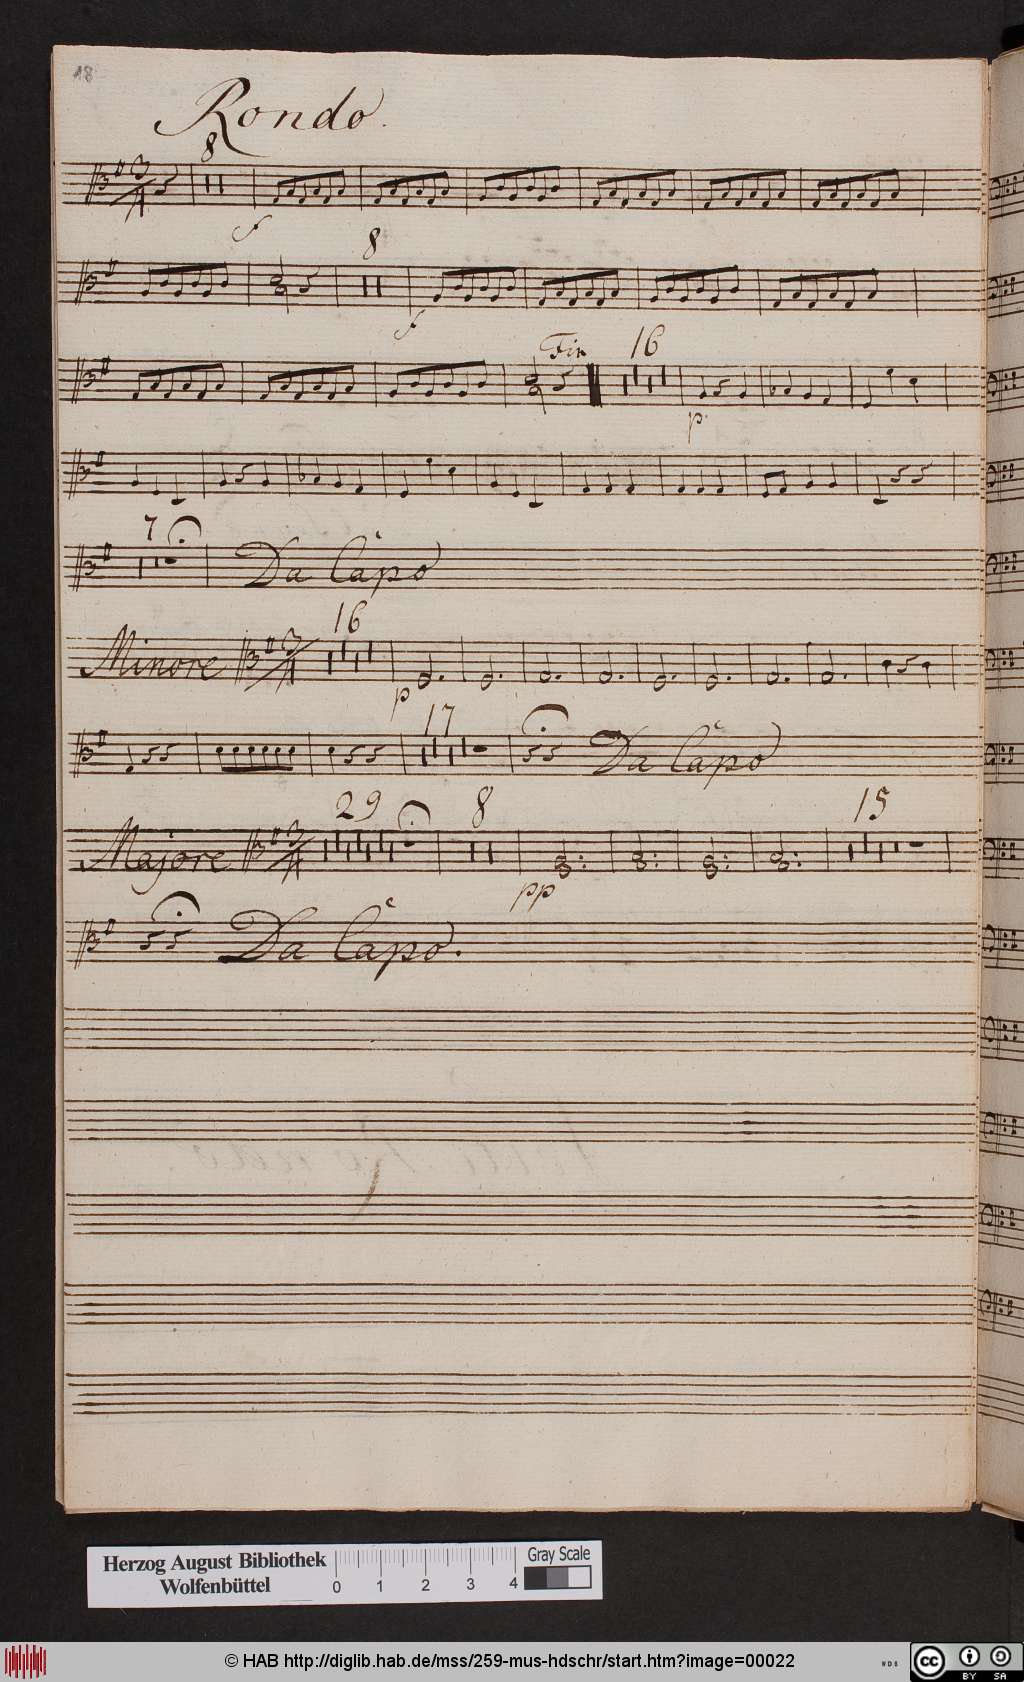 18
Rondo.
8
3/4
f
8
f
Fin
16
p.
7
Da Capo
Minore
3/4
16
p
17
Da Capo
Majore
3/4
29
8
15
pp
Da Capo.
Herzog August Bibliothek
Wolfenbüttel
0 1 2 3 4
Gray Scale
© HAB http://diglib.hab.de/mss/259-mus-hdschr/start.htm?image=00022
WDB
cc
BY SA